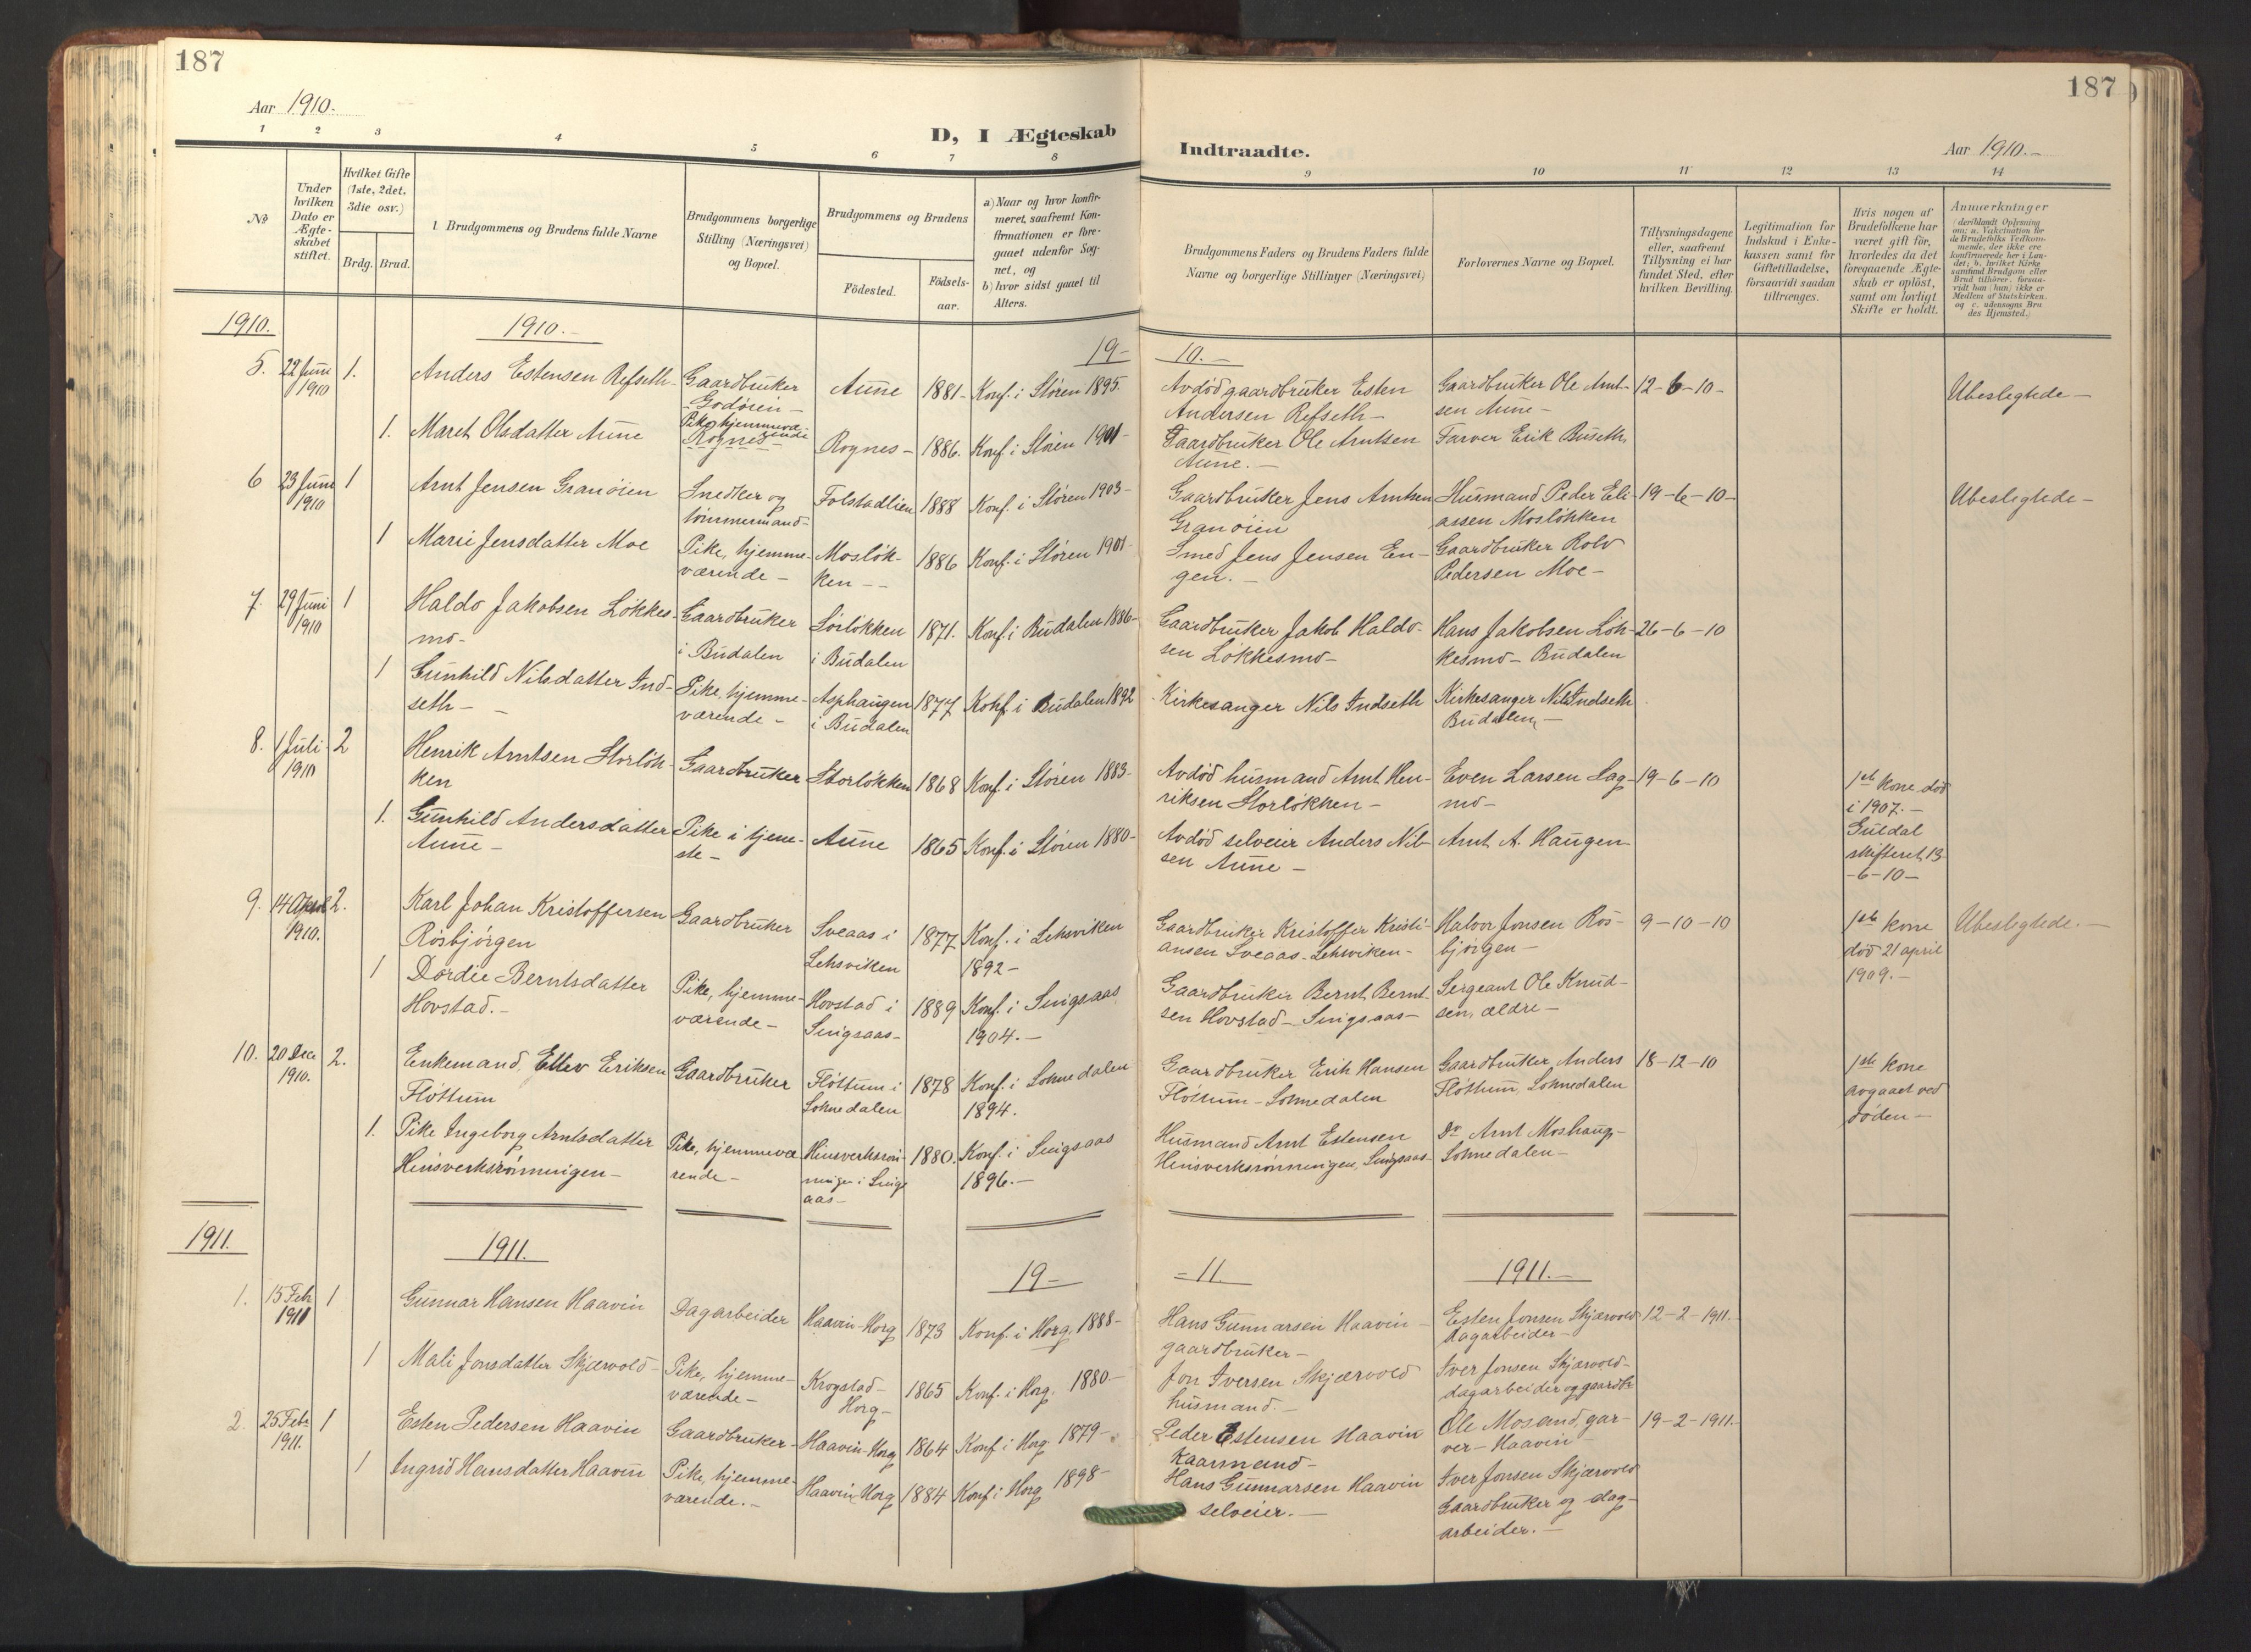 187
187
Aar 1910.
D, I Ægteskab
Indtraadte.
Aar 1910.
1 2 3 4 5 6 7 8 9 10 11 12 13 14
No
Under
hvilken
Dato er
Ægte-
skabet
stiftet.
Hvilket Gifte
(1ste, 2det,
3die osv.)
Brdg. Brud.
Brudgommens og Brudens fulde Navne
Brudgommens borgerlige
Stilling (Næringsvei)
og Bopæl.
Brudgommens og Brudens
Födested.
Födsels-
aar.
a) Naar og hvor konfir-
meret, saafremt Kon-
firmationen er fore-
gaaet udenfor Sog-
net, og
b) hvor sidst gaaet til
Alters.
Brudgommens Faders og Brudens Faders fulde
Navne og borgerlige Stillinger (Næringsvei)
Forlovernes Navne og Bopæl.
Tillysningsdagene
eller, saafremt
Tillysning ei har
fundet Sted, efter
hvilken Bevilling.
Legitimation for
Indskud i Enke-
kassen samt for
Giftetilladelse,
forsaavidt saadan
tiltrænges.
Hvis nogen af
Brudefolkene har
været gift för,
hvorledes da det
foregaaende Ægte-
skab er oplöst,
samt om lovligt
Skifte er holdt.
Anmærkninger
(deriblandt Oplysning
om: a. Vakcination for
de Brudefolks Vedkom-
mende, der ikke ere
konfirmerede her i Lan-
det; b. hvilket Kirke
samfund Brudgom eller
Brud tilhörer, forsaa-
vidt han (hun) ikke er
Medlem af Statskirken.
og c. udensogns Bru
des Hjemsted.)
1910. 1910. 19- 10.-
5. 22 Juni
1910
1.
Anders Estensen Refseth
Gaardbruker
Godöien
Aune
1881
Konf. i Stören 1895.
Avdöd gaardbruker Esten
Andersen Refseth-
Gaardbruker Ole Arnt-
sen Aune-
12-6-10-
Ubeslegtede-
1.
Maret Olsdatter Aune
Pike hjemmevæ-
rende
Rognes
Rognes-
1886.
Konf. i Stören 1901-
Gaardbruker Ole Arntsen
Aune.-
Farver Erik Buseth
6 23 Juni
1910
1
Arnt Jensen Granöien
Snedker og
tömmermand-
Folstadlien
1888
Konf. i Stören 1903-
Gaardbruker Jens Arntsen
Granöien
Husmand Peder Eli-
assen Moslökken
19-6-10-
Ubeslegtede-
1
Marie Jensdatter Moe
Pike, hjemme-
værende-
Moslök-
ken--
1886
Konf. i Stören 1901-
Smed Jens Jensen En-
gen.-
Gaardbruker Rolv
Pedersen Moe-
7. 29 Juni
1910
1
Haldo Jakobsen Lökkes-
mo-
Gaardbruker
i Budalen
Sörlökken
i Budalen
1871.
Konf. i Budalen 1886-
Gaardbruker Jakob Haldo-
sen Lökkesmo-
Hans Jakobsen Lök-
kesmo- Budalen
26-6-10
1
Gunhild Nilsdatter Ind-
seth-
Pike, hjemme-
værende-
Asphaugen
i Budalen
1877
Konf. i Budalen 1892
Kirkesanger Nils Indseth
Kirkesanger Nils Indseth
Budalen-
8. 1 Juli
1910
2
Henrik Arntsen Storlök-
ken
Gaardbruker
Storlökken
1868
Konf. i Stören 1883-
Avdöd husmand Arnt Hen-
riksen Storlökken-
Even Larsen Hag-
mo-
19-6-10
1ste kone död
i 1907.-
Guldal
skifteret 13
-6-10-
1.
Gunhild Andersdatter
Aune-
Pike i tjene-
ste-
Aune
1865
Konf. i Stören 1880-
Avdöd selveier Anders Nil-
sen Aune-
Arnt A. Haugen
9. 14
1910.
2.
Karl Johan Kristoffersen
Rösbjörgen
Gaardbruker
Sveaas i
Leksviken
1877
Konf. i Leksviken
1892-
Gaardbruker Kristoffer Kristi-
ansen Sveaas- Leksviken-
Halvor Jonsen Rös-
björgen-
9-10-10
1ste kone
död 21 april
1909.-
Ubeslegtede.-
1
Dordie Berntsdatter
Hovstad.-
Pike, hjemme-
værende-
Hovstad i
Singsaas-
1889
Konf. i Singsaas
1904.-
Gaardbruker Bernt Bernt-
sen Hovstad- Singsaas-
Sergeant Ole Knud-
sen, ældre-
10. 20 Dec
1910.
2.
Enkemand, Ellev Eriksen
Flöttum
Gaardbruker
Flöttum i
Soknedalen
1878
Konf. i Soknedalen
1894.
Gaardbruker Erik Hansen
Flöttum- Soknedalen
Gaardbruker, Anders
Flöttum, Soknedalen
18-12-10
1ste kone
avgaaet ved
döden-
1.
Pike Ingeborg Arntsdatter
Hinsverksrönningen-
Pike, hjemmevæ
rende-
Hinsverksrön-
ningen i Sings
aas-
1880.
Konf. i Singsaas
1896.-
Husmand Arnt Estensen
Hinsverksrönningen, Singsaas-
Do Arnt Moshaug-
Soknedalen-
1911. 1911. 19- -11. 1911.-
1. 15 Feb
1911
1
Gunnar Hansen Haavin
Dagarbeider
Haavin-Horg
1873
Konf. i Horg. 1888-
Hans Gunnarsen Haavin-
gaardbruker-
Esten Jonsen Skjærvold
dagarbeider-
12-2-1911.
1
Mali Jonsdatter Skjærvold-
Pike, hjemme-
værende-
Krogstad-
Horg-
1865
Konf. i Horg. 1880-
Jon Iversen Skjærvold
husmand.-
Iver Jonsen Skjærvold-
dagarbeider og gaardb
2. 25 Feb
1911.
1
Esten Pedersen Haavin
Gaardbruker-
Haavin-Horg
1864
Konf. i Horg 1879-
Peder Estensen Haavin
Kaarmand-
Ole Mosand, gar-
ver- Haavin
19-2-1911.-
1
Ingrid Hansdatter Haavin
Pike, hjemme-
værende.-
Haavin-Horg
1884
Konf. i Horg 1898-
Hans Gunnarsen Haavin
selveier.-
Iver Jonsen Skjærvold
Gaardbruker og dag-
arbeider.-